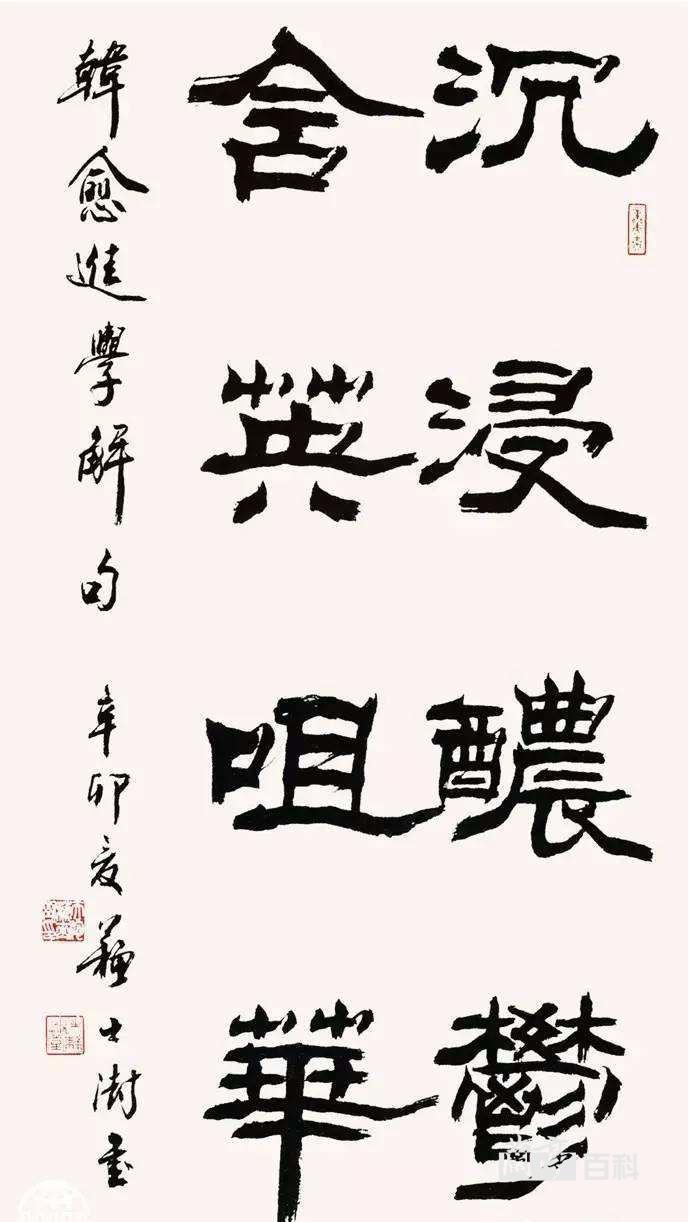 沉浸醲鬱
含英咀華
韓愈進學解句 辛卯夏蘇士澍書
百科